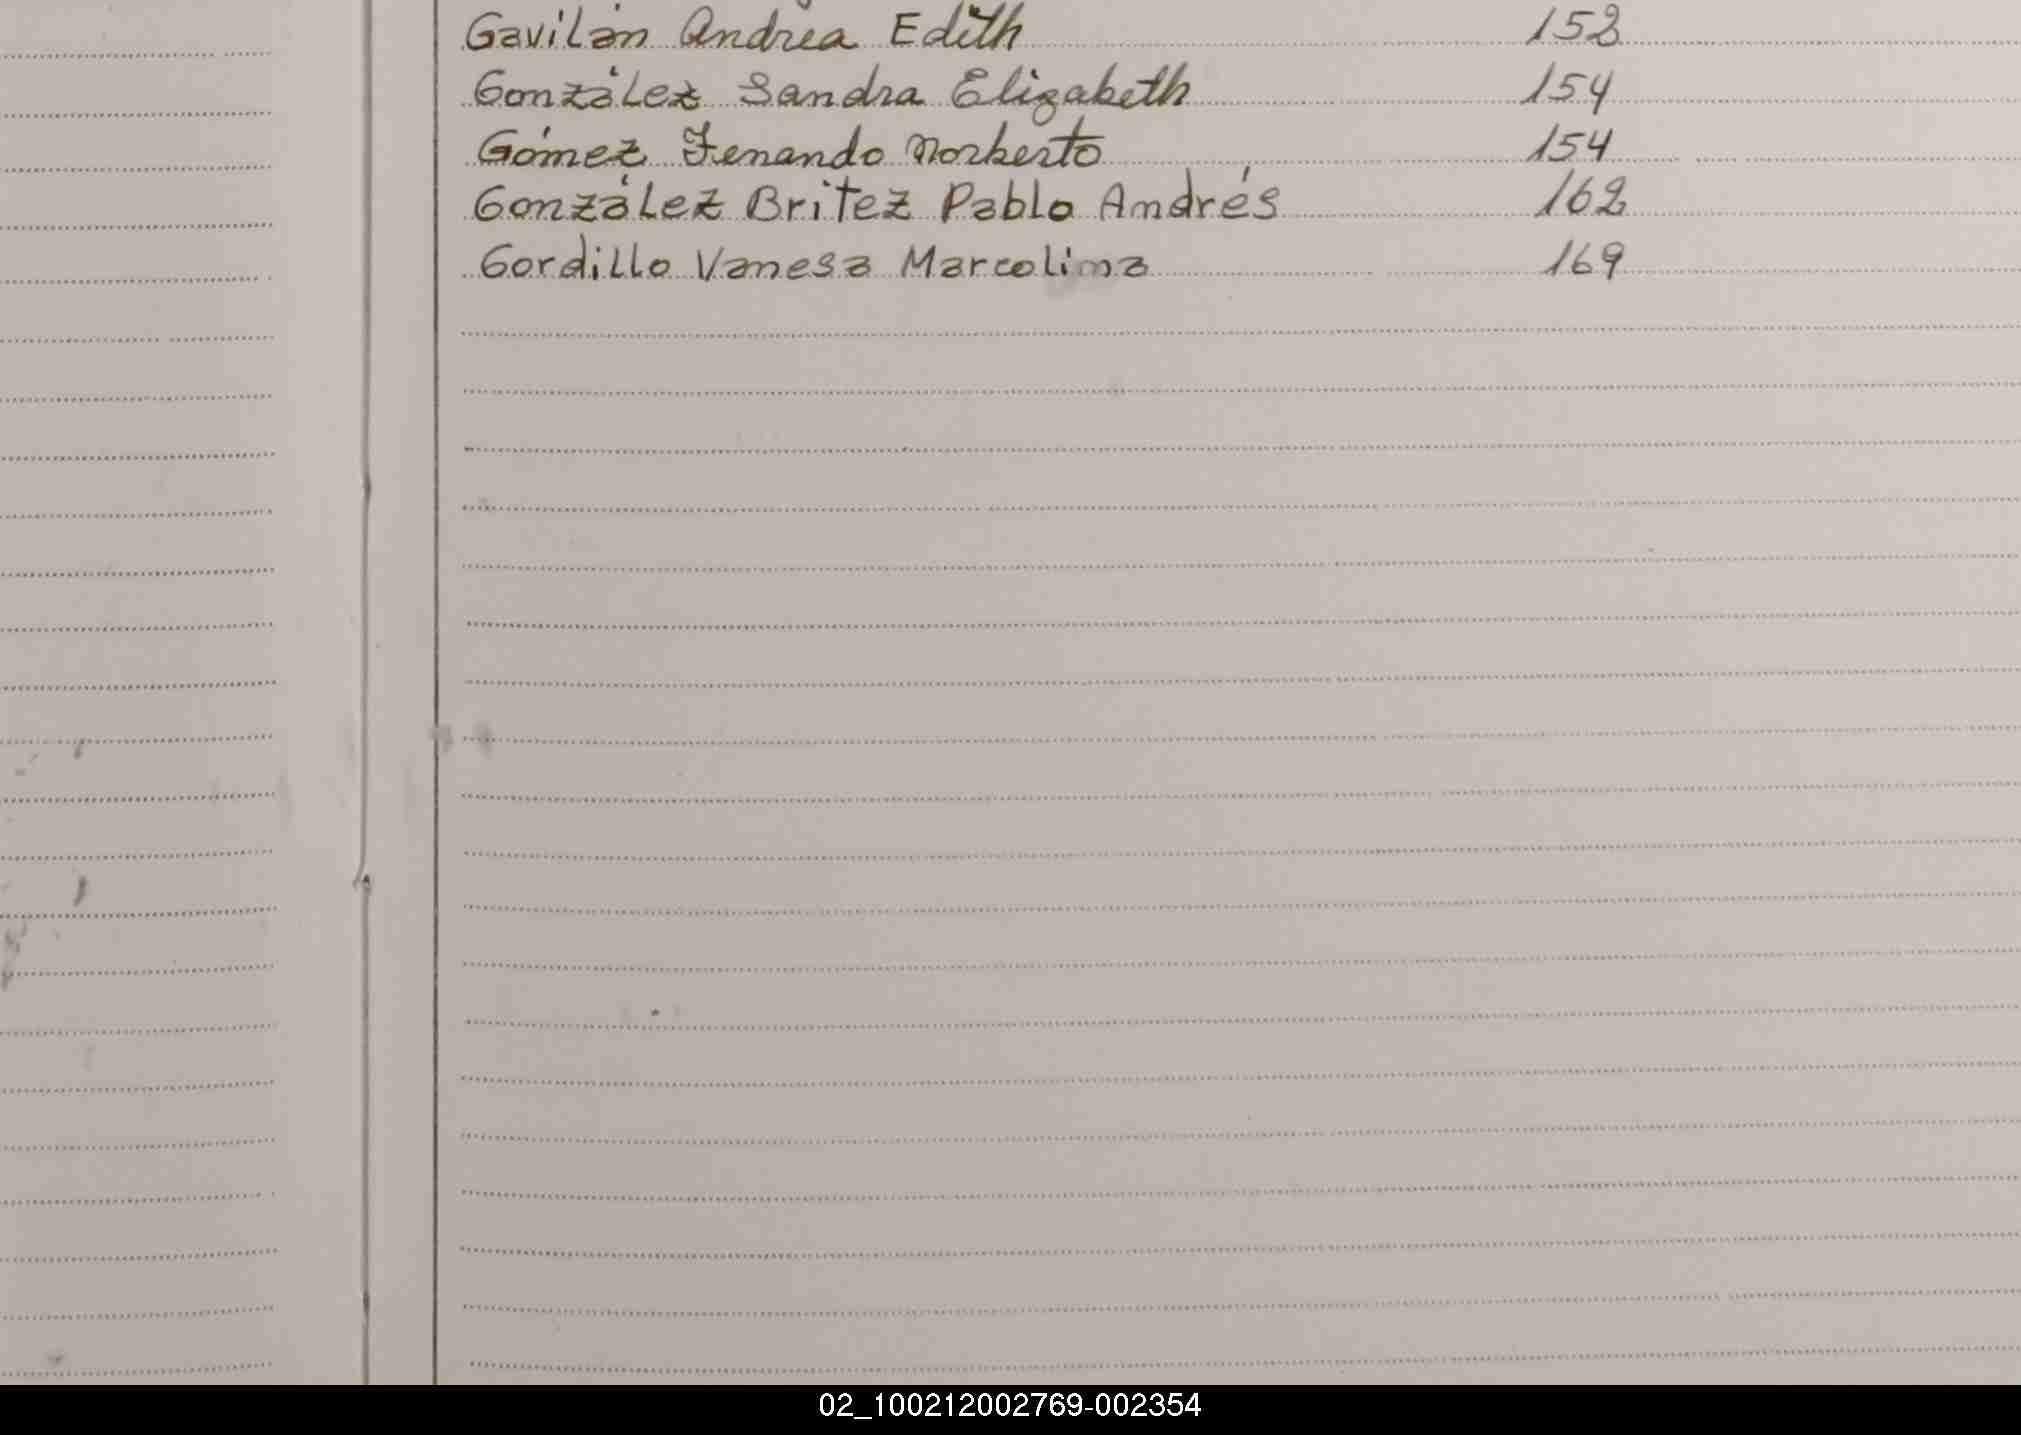 Gavilán Andrea Edith 152
González Sandra Elizabeth 154
Gómez Fenando Norberto 154
González Britez Pablo Andrés 162
Gordillo Vanesa Marcolina 169
02_100212002769-002354